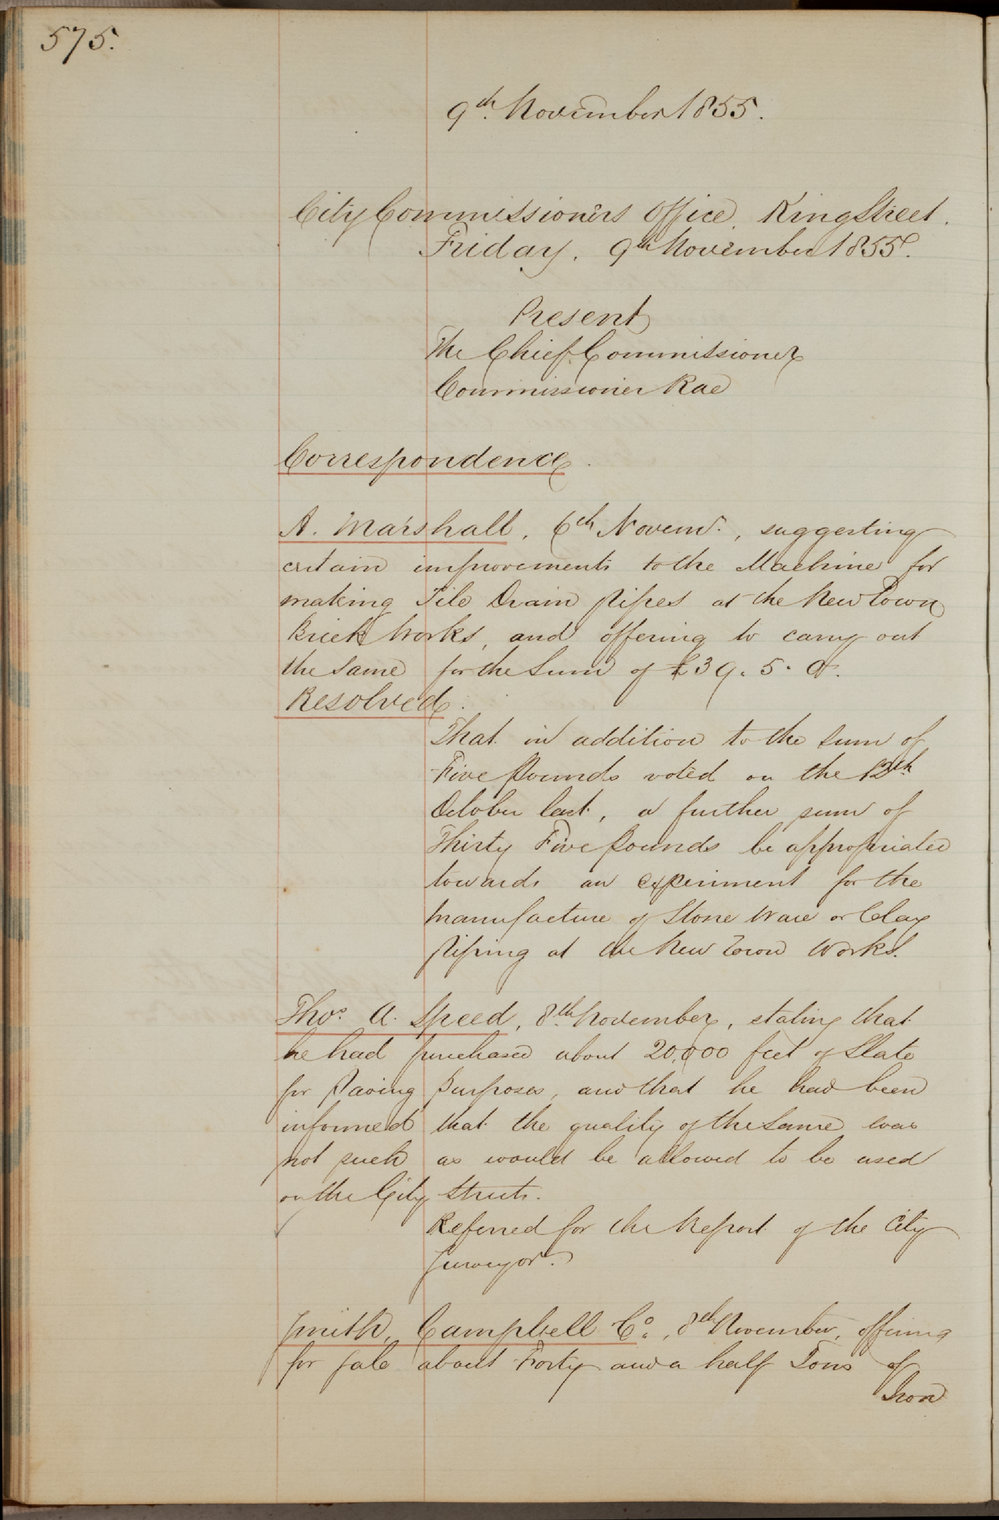 575.
9th November 1855.
City Commissioners Office, King Street.
Friday, 9th November 1855.
Present
The Chief Commissioner
Commissioner Rae
Correspondence.
A. Marshall, 6th Novemr., suggesting
certain improvements to the Machine for
making Tile Drain Pipes at the New Town
Brick Works, and offering to carry out
the same for the Sum of £39.5.0.
Resolved.
That in addition to the sum of
Five Pounds voted on the 12th
October last, a further sum of
Thirty Five Pounds be appropriated
towards an experiment for the
Manufacture of Stone Ware or Clay
Piping at the New Town Works.
Thos. A. Speed, 8th November, stating that
he had purchased about 20,000 feet of Slate
for Paving Purposes, and that he had been
informed that the quality of the same was
not such as would be allowed to be used
on the City Streets.
Referred for the Report of the City
Surveyor.
Smith, Campbell Co., 8th November, offering
for sale about Forty and a half Tons of
Iron